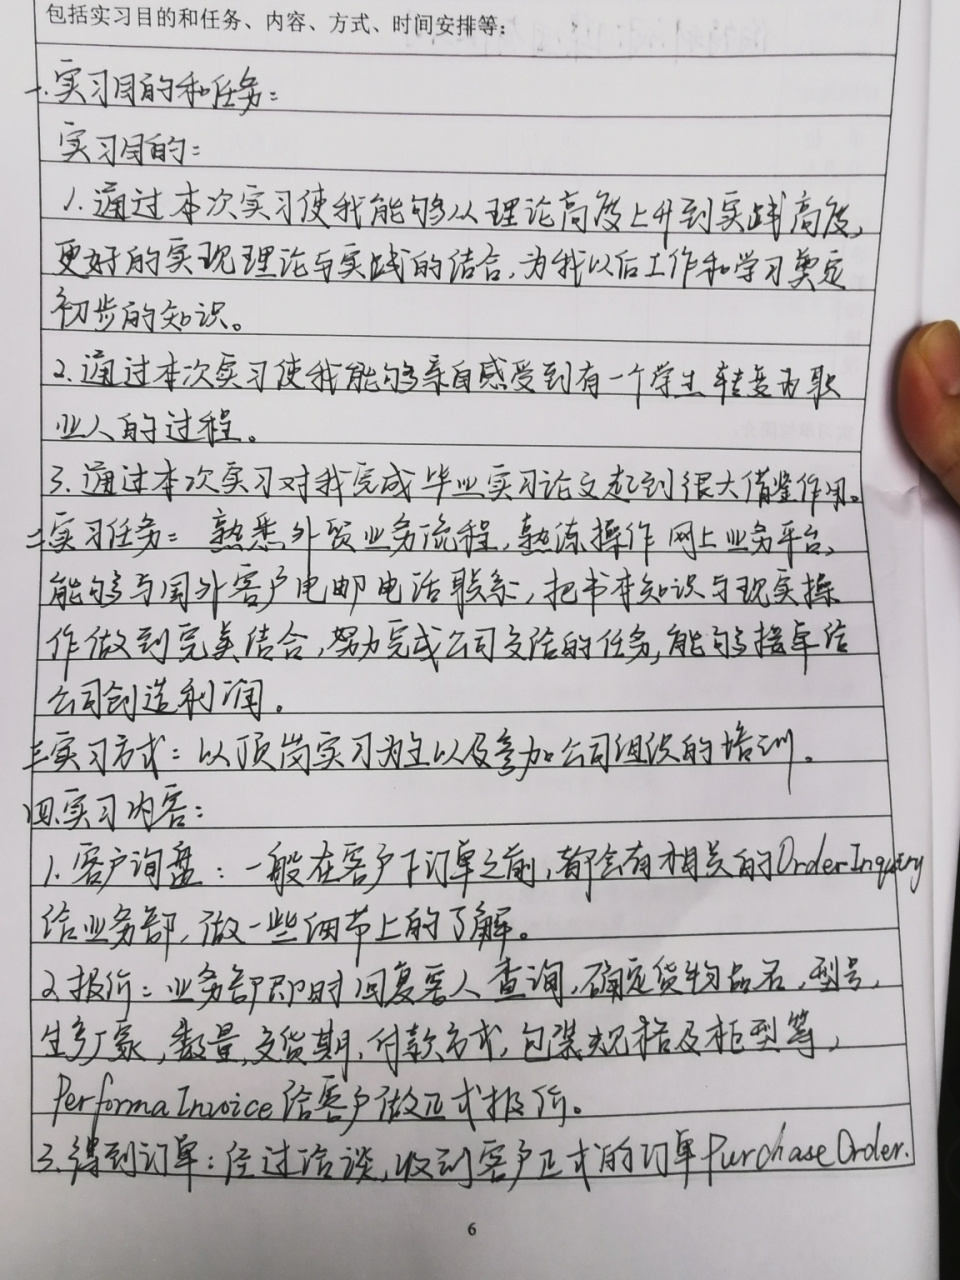 包括实习目的和任务、内容、方式、时间安排等:
一.实习目的和任务:
实习目的:
1.通过本次实习使我能够从理论高度上升到实践高度,
更好的实现理论与实践的结合,为我以后工作和学习奠定
初步的知识。
2.通过本次实习使我能够亲自感受到有一个学生转变为职
业人的过程。
3.通过本次实习对我完成毕业实习论文起到很大借鉴作用。
二实习任务: 熟悉外贸业务流程,熟练操作网上业务平台,
能够与国外客户电邮电话联系,把书本知识与现实操
作做到完美结合,努力完成公司交给的任务,能够接单给
公司创造利润。
三实习方式:以顶岗实习为主以及参加公司组织的培训。
四.实习内容:
1.客户询盘:一般在客户下订单之前,都会有相关的Order Inquery
给业务部,做一些细节上的了解。
2.报价:业务部即时回复客人查询,确定货物品名,型号,
生产厂家,数量,交货期,付款方式,包装规格及柜型等,
Performa Invoice给客户做正式报价。
3.得到订单:经过洽谈,收到客户正式的订单Purchase Order.
6